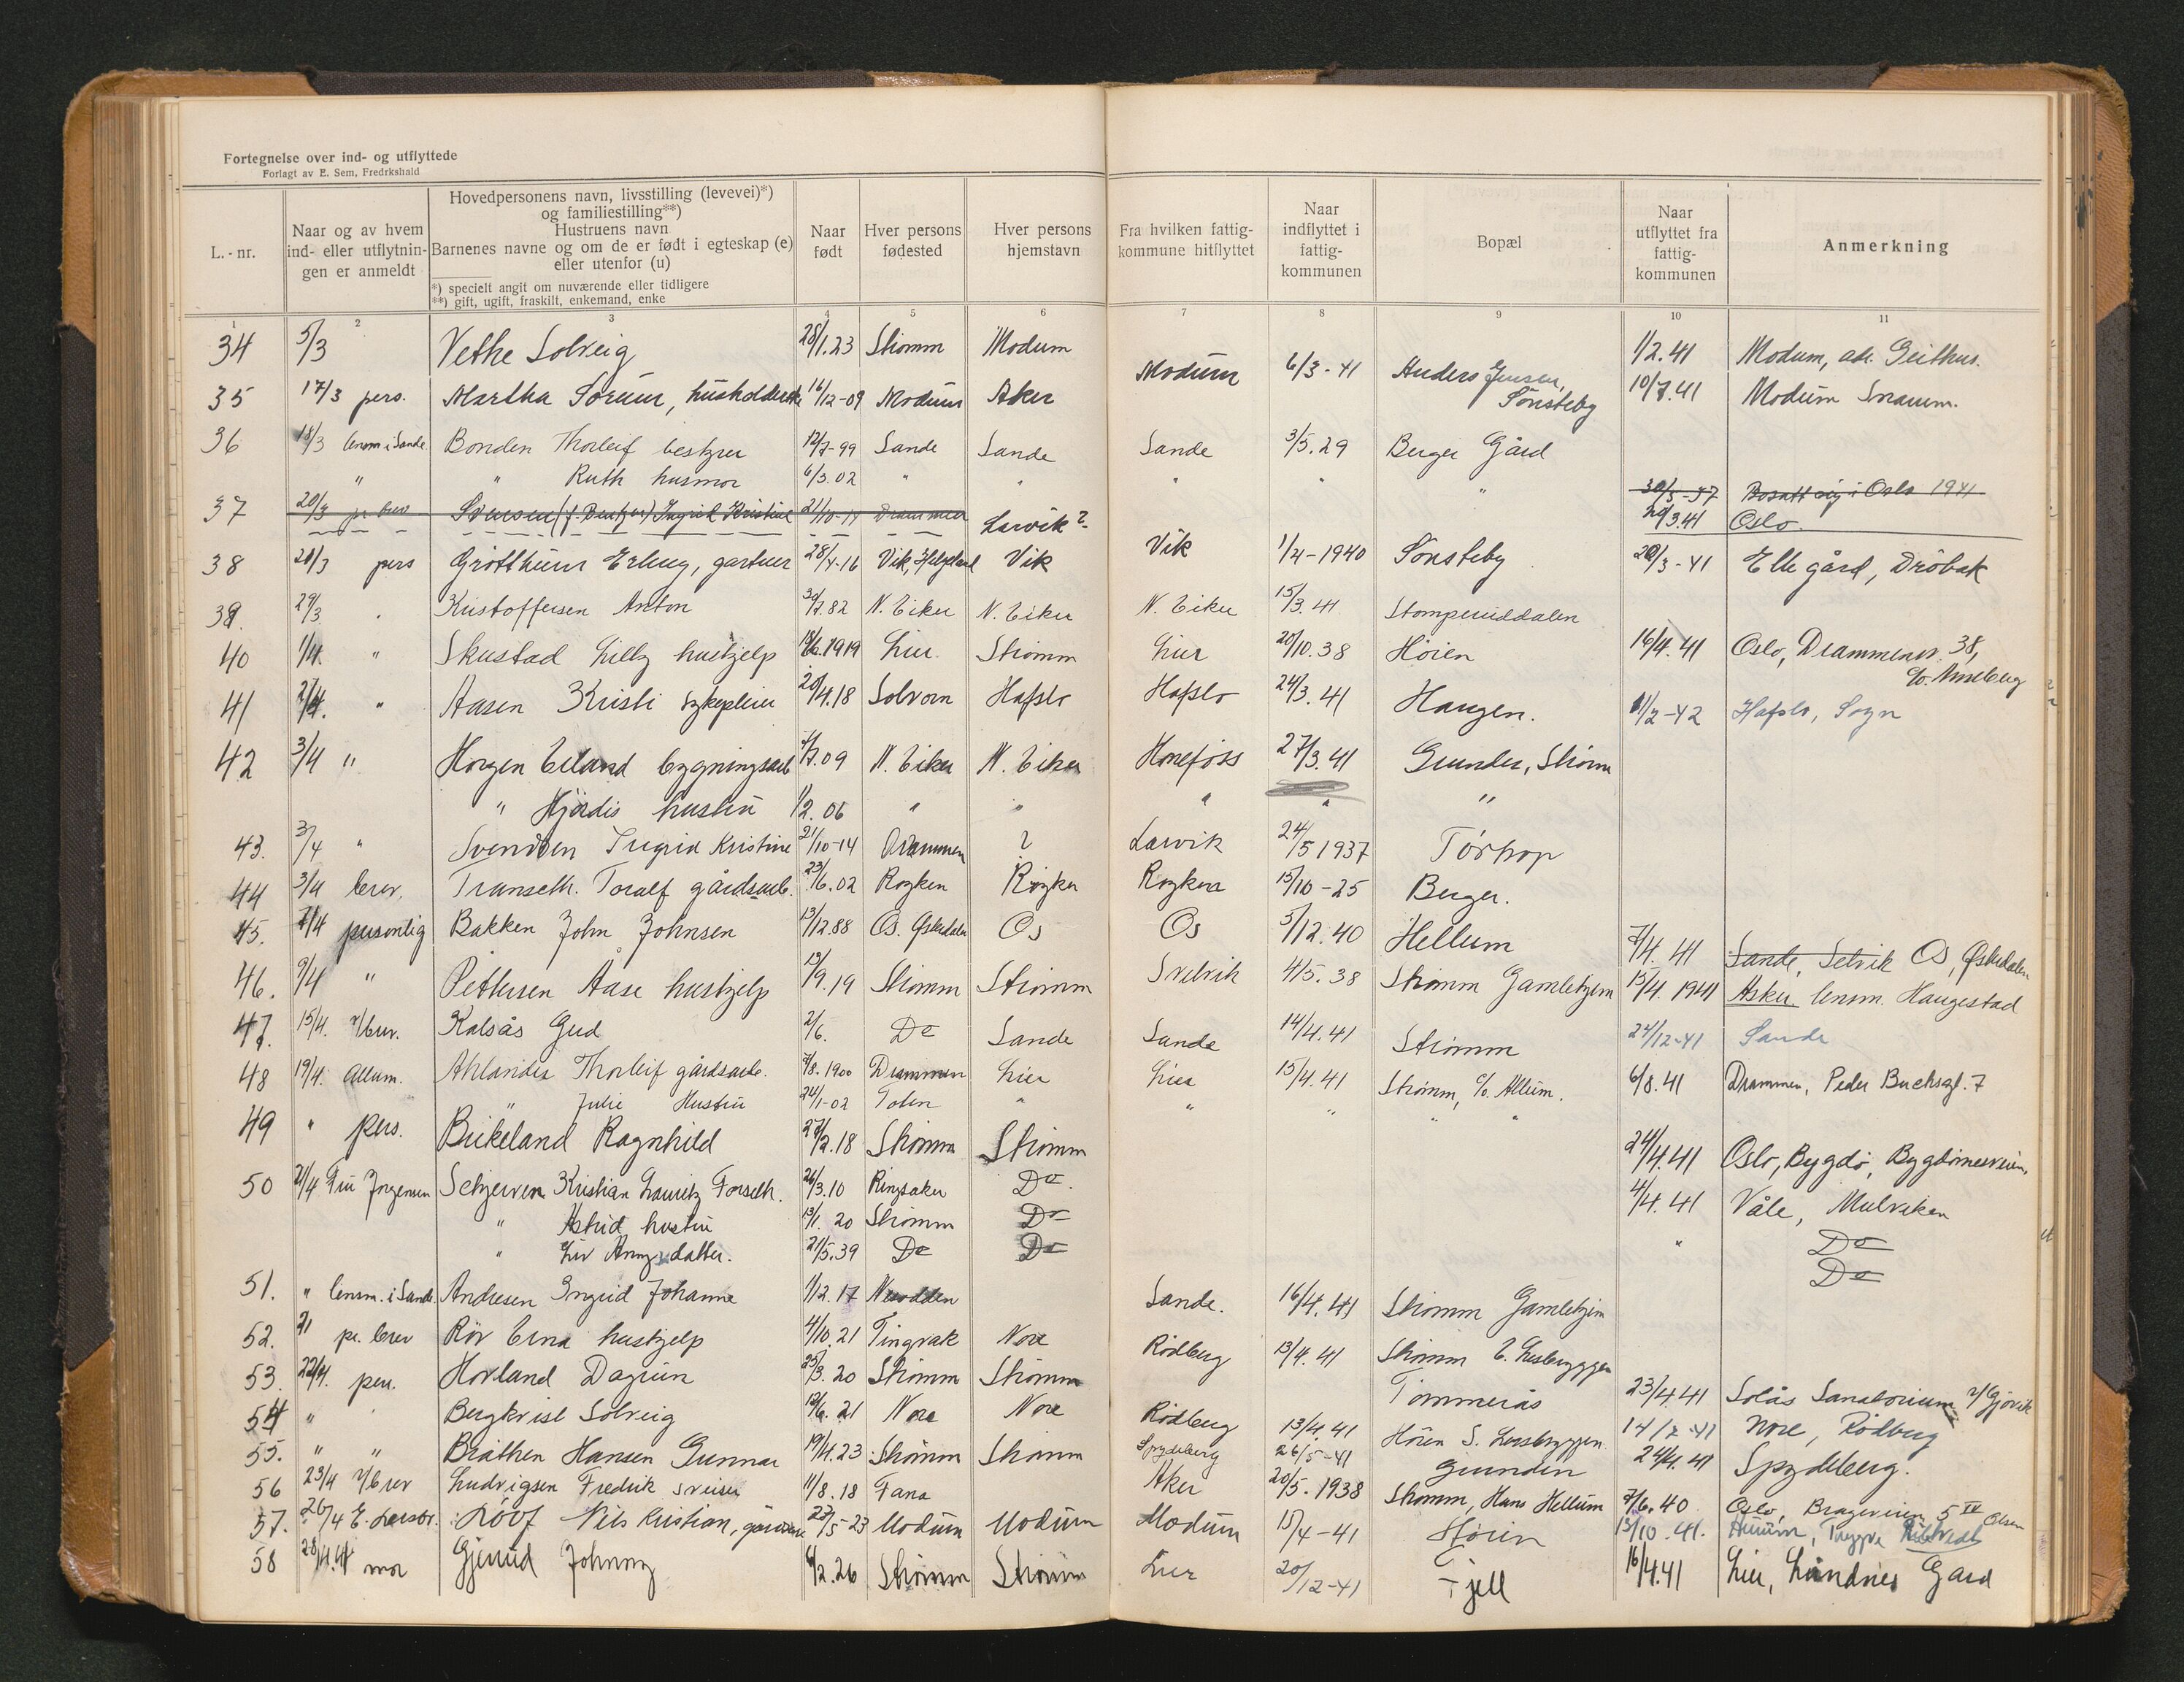 Fortegnelse over ind- og utflyttede
Forlagt av E. Sem, Fredrkshald
L.-nr.
Naar og av hvem ind- eller utflytnin- gen er anmeldt
Hovedpersonens navn, livsstilling (levevei)*) og familiestilling**) Hustruens navn Barnenes navne og om de er født i egteskap (e) eller utenfor (u)
*) specielt angit om nuværende eller tidligere
**) gift, ugift, fraskilt, enkemand, enke
Naar født
Hver persons fødested
Hver persons hjemstavn
Fra hvilken fattig- kommune hitflyttet
Naar indflyttet i fattig- kommunen
Bopæl
Naar utflyttet fra fattig- kommunen
Anmerkning
1 2 3 4 5 6 7 8 9 10 11
34 5/3 Vethe Solveig 28/1.23 Strømm Modum 1/2.41 Modum, adr. Geithus.
35 17/3 pers. Martha Sørum, husholderske 16/12-09 Modum Aker Modum 6/3-41 Anders Jensen, Sønsteby 10/7.41 Modum Snarum.
36 18/3 lensm i Sande Bonden Thorleif bestyrer 12/7-99 Sande Sande Sande 3/5.29 Berger Gård
" " Ruth husmor 6/3.02 " " " " "
37 20/3 pr. brev Svensen (f. Bentzen) Ingrid Kristine 21/10-14 Drammen Larvik? 30/5-37 Bosatt sig i Oslo 1941
20/3.41 Oslo.
38 20/3 pers Grøtthum Erling, gartner 28/4-16 Vik, Helgeland Vik Vik 1/4-1940 Sønsteby 20/3-41 Elle gård, Drøbak
39. 29/3 " Kristoffersen Anton 30/7.82 N. Eiker N. Eiker N. Eiker 15/3.41 Stomperuddalen
40 1/4. " Skustad Lilly hushjelp 18/6.1919 Lier Strømm Lier 20/10.38 Høien 16/4.41 Oslo, Drammensv. 38, c/o. Anneberg
41 2/4. " Aasen Kristi sykepleier 20/4.18 Solvorn Hafslo Hafslo 24/3.41 Haugen. 11/2-42 Hafslo, Sogn
42 3/4 " Horgen Erland bygningsarb 7/7.09 N. Eiker N. Eiker Hønefoss 27/3.41 Grunden, Strømm
" Hjørdis hustru 1/2.06 " " " " "
43. 3/4 " Svendsen Ingrid Kristine 21/10-14 Drammen ? Larvik 24/5 1937 Tørkop
44 3/4 brev. Transeth. Toralf gårdsarb. 23/6.02 Røyken Røyken Røyken 15/10-25 Berger.
45. 7/4 personlig Bakken John Johnsen 13/12.88 Os. Østerdalen Os Os 5/12.40 Hellum 7/4.41 Sande, Selvik Os, Østerdalen
46. 9/4 " Pettersen Åase hushjelp 13/9.19 Strømm Strømm Svelvik 4/5.38 Strømm Gamlehjem 15/4.1941 Asker lensm. Haugestad
47. 15/4. v/brev. Kalsås Gud 2/6. Do Sande Sande 14/4.41 Strømm 24/12-41 Sande
48 19/4. Allum. Ahlander Thorleif gårdsarb. 7/8.1900 Drammen Lier Lier 15/4.41 Strømm, c/o. Allum. 6/8.41 Drammen, Peder Buchsgt. 7
" Julie Hustru 24/1-02 Toten " " " " "
49 " pers. Birkeland Ragnhild 27/2.18 Strømm Strømm 24/4.41 Oslo, Bygdø, Bygdønesveien,
50 21/4 Fru Jørgensen Schjerven Kristian Lauritz Forseth. 26/3.10 Ringsaker Do. 4/4.41 Våle, Mulviken
" Astrid hustru 13/1.20 Strømm Do " Do
" Liv Anny datter. 21/5.39 Do Do Do
51. " lensm. i Sande. Andresen Ingrid Johanne 1/12.17 Nesodden Sande. 16/4.41 Strømm Gamlehjem
52. 21 pr. brev Rør Erna hushjelp 4/10.21 Nore Rødberg 13/4.41 Strømm E. Lersbryggen
53. 22/4. pers. Hovland Dagrun 25/3.20 Strømm Strømm Tømmerås 23/4.41 Solås Sanatorium v/Gjøvik
54 " Bergkvist Solveig 12/6.21 Nore Nore Rødberg 13/4.41 Høien S. Lersbryggen 14/2-41 Nore, Rødberg
55. " " Bråthen Hansen Gunnar 19/4.23 Strømm Strømm Spydeberg 26/5-41 Grunden 24/4.41 Spydeberg.
56 23/4 v/brev Ludvigsen Fredrik sveiser 11/8.18 Fana Aker 20/5.1938 Strømm, Hans Hellum 7/6.40 Oslo, Brageveien 5 IV Olsen
57. 26/4 E. Lersbr. Nils Kristian, 23/5-23 Modum Modum Modum 15/4-41 Høien 13/10.41. Hurum, Trygve
58 28/4.41 mor Gjerud Johnny 6/2.26 Strømm Strømm Lier 20/12-41 Fjell 16/4.41 Lier, Lundnes Gard